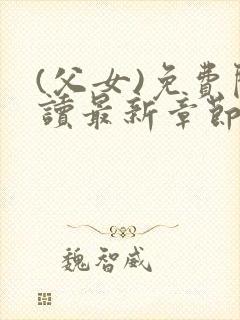 (父女)免費
讀最新章節
魏智威